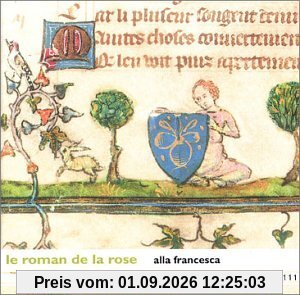 Car li pluseur songent
Maintes choses couvertement
Q̃ len voit puis apertement
le roman de la rose
alla francesca
Preis vom: 01.09.2026 12:25:03